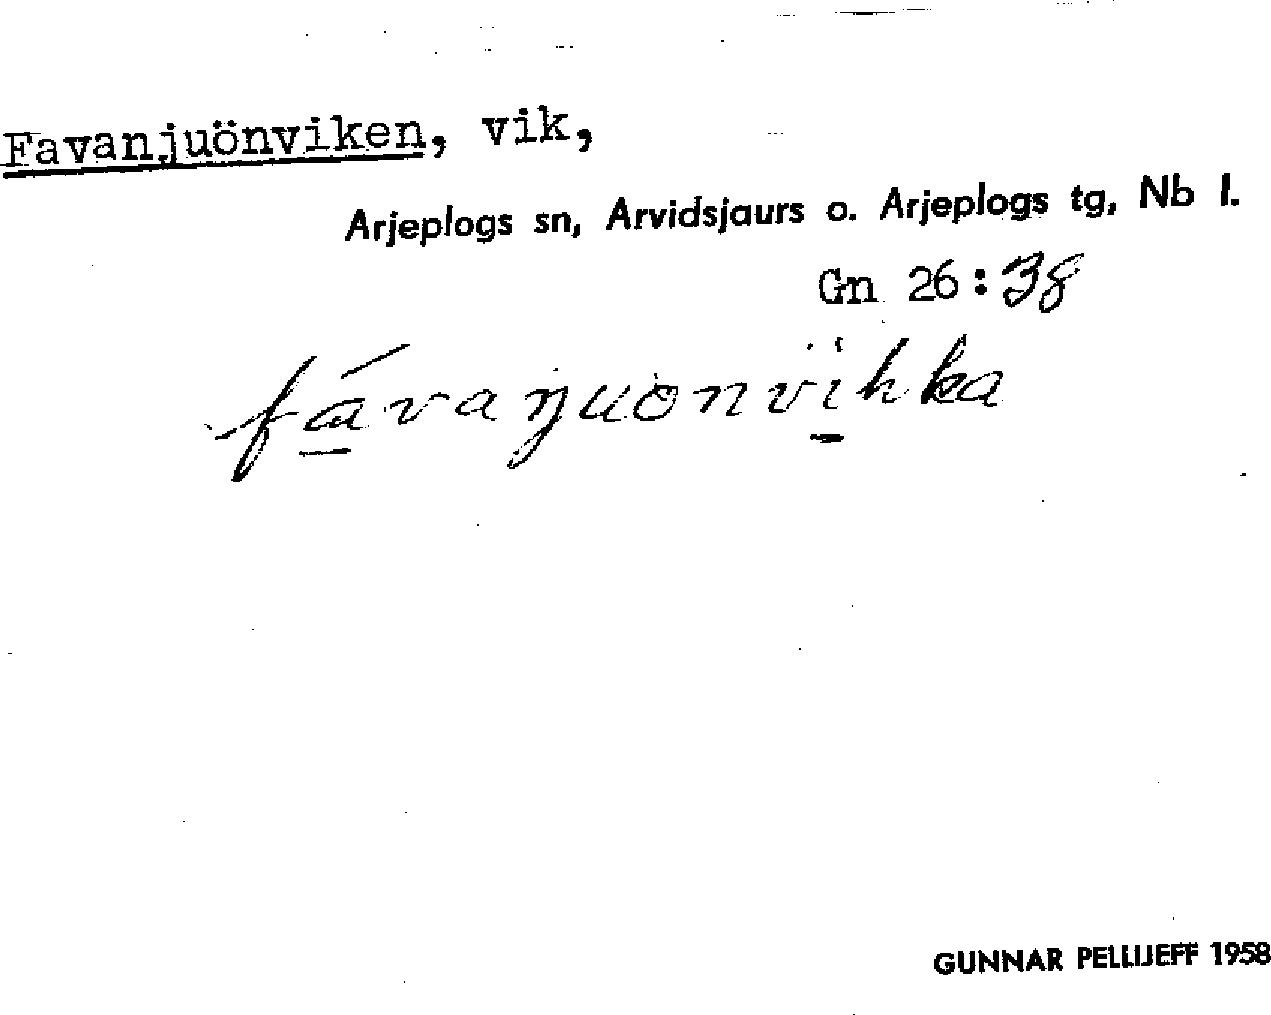 Favanjuönviken, vik,
Arjeplogs sn, Arvidsjaurs o. Arjeplogs tg, Nb l.
Gn 26:38
fávaŋuönvihka
GUNNAR PELLIJEFF 1958